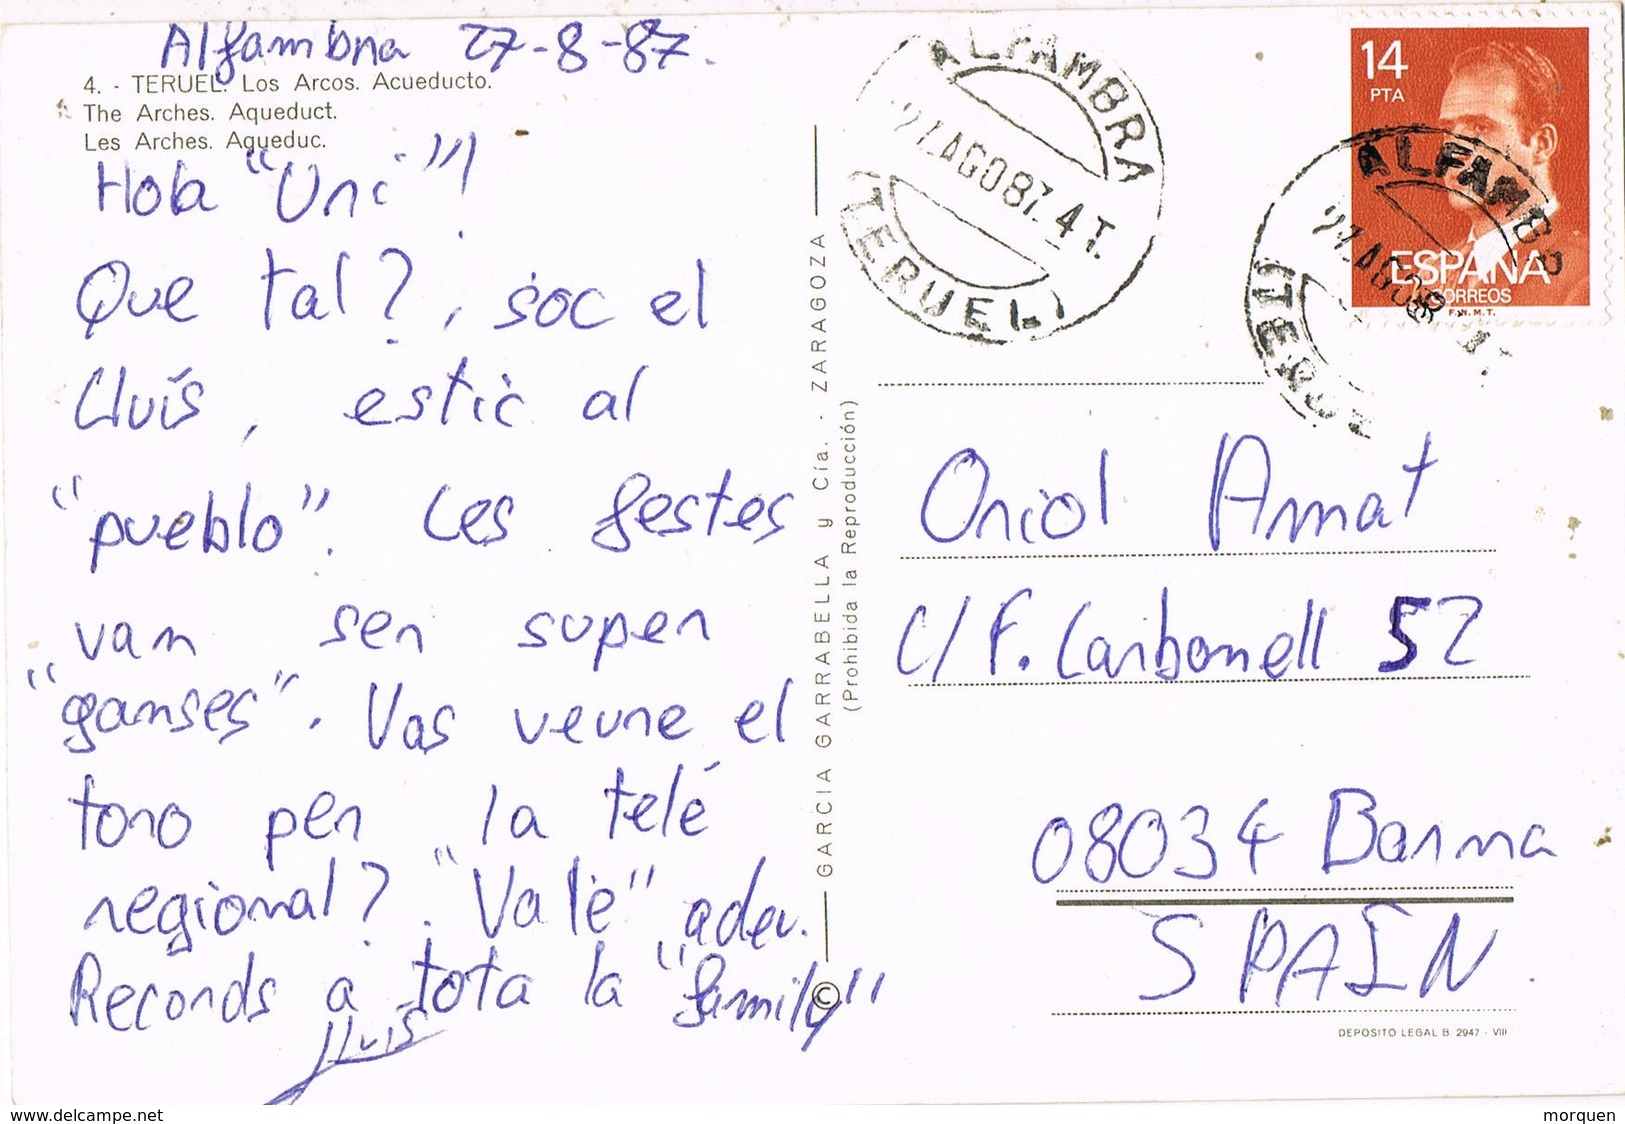 Alfambra 27-8-87.
4. - TERUEL. Los Arcos. Acueducto.
The Arches. Aqueduct.
Les Arches. Aqueduc.
Hola "Uri"!
Que tal?, soc el
Lluís, estic al
"pueblo". Les festes
van ser super
"ganses". Vas veure el
toro per la telé
regional? "Vale" adeu.
Records a tota la "family"
Lluís
GARCIA GARRABELLA y Cía. - ZARAGOZA
(Prohibida la Reproducción)
©
ALFAMBRA
27.AGO87.4T.
(TERUEL)
14
PTA
ESPAÑA
CORREOS
F.N.M.T.
ALFAMBR
27.AGO8
(TERUE
Oriol Amat
C/ F. Carbonell 52
08034 Barna
SPAIN.
DEPOSITO LEGAL B. 2947 - VIII
www.delcampe.net
morquen